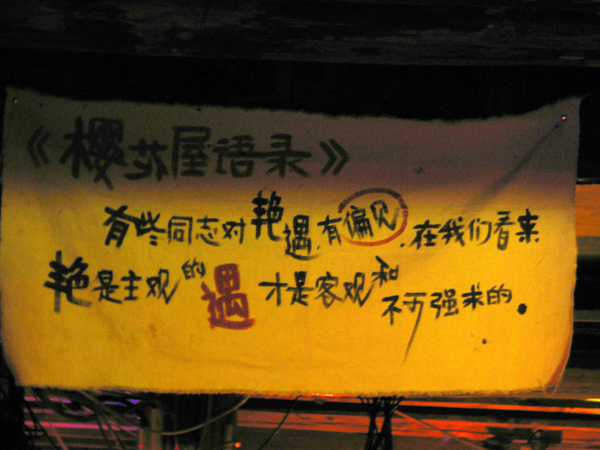 《樱花屋语录》
有些同志对艳遇.有偏见.在我们看来
艳是主观的遇才是客观和不可强求的.